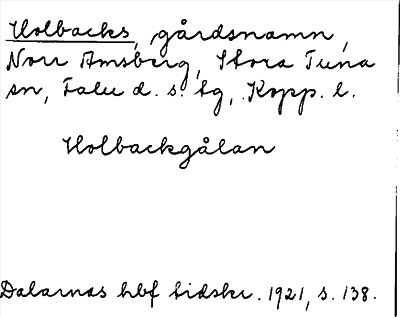 Holbacks, gårdsnamn,
Norr Amsberg, Stora Tuna
sn, Falu d. s. tg, Kopp. l.
Holbackgålan
Dalarnas hbf tidskr. 1921, s. 138.